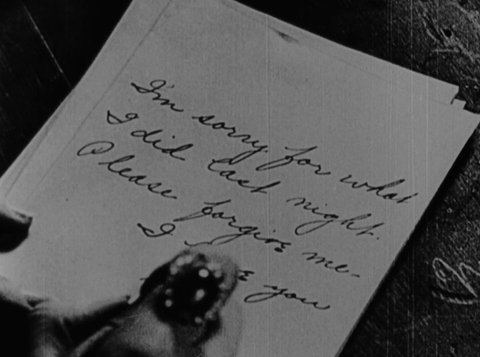 I'm sorry for what
I did last night.
Please forgive me.
I you